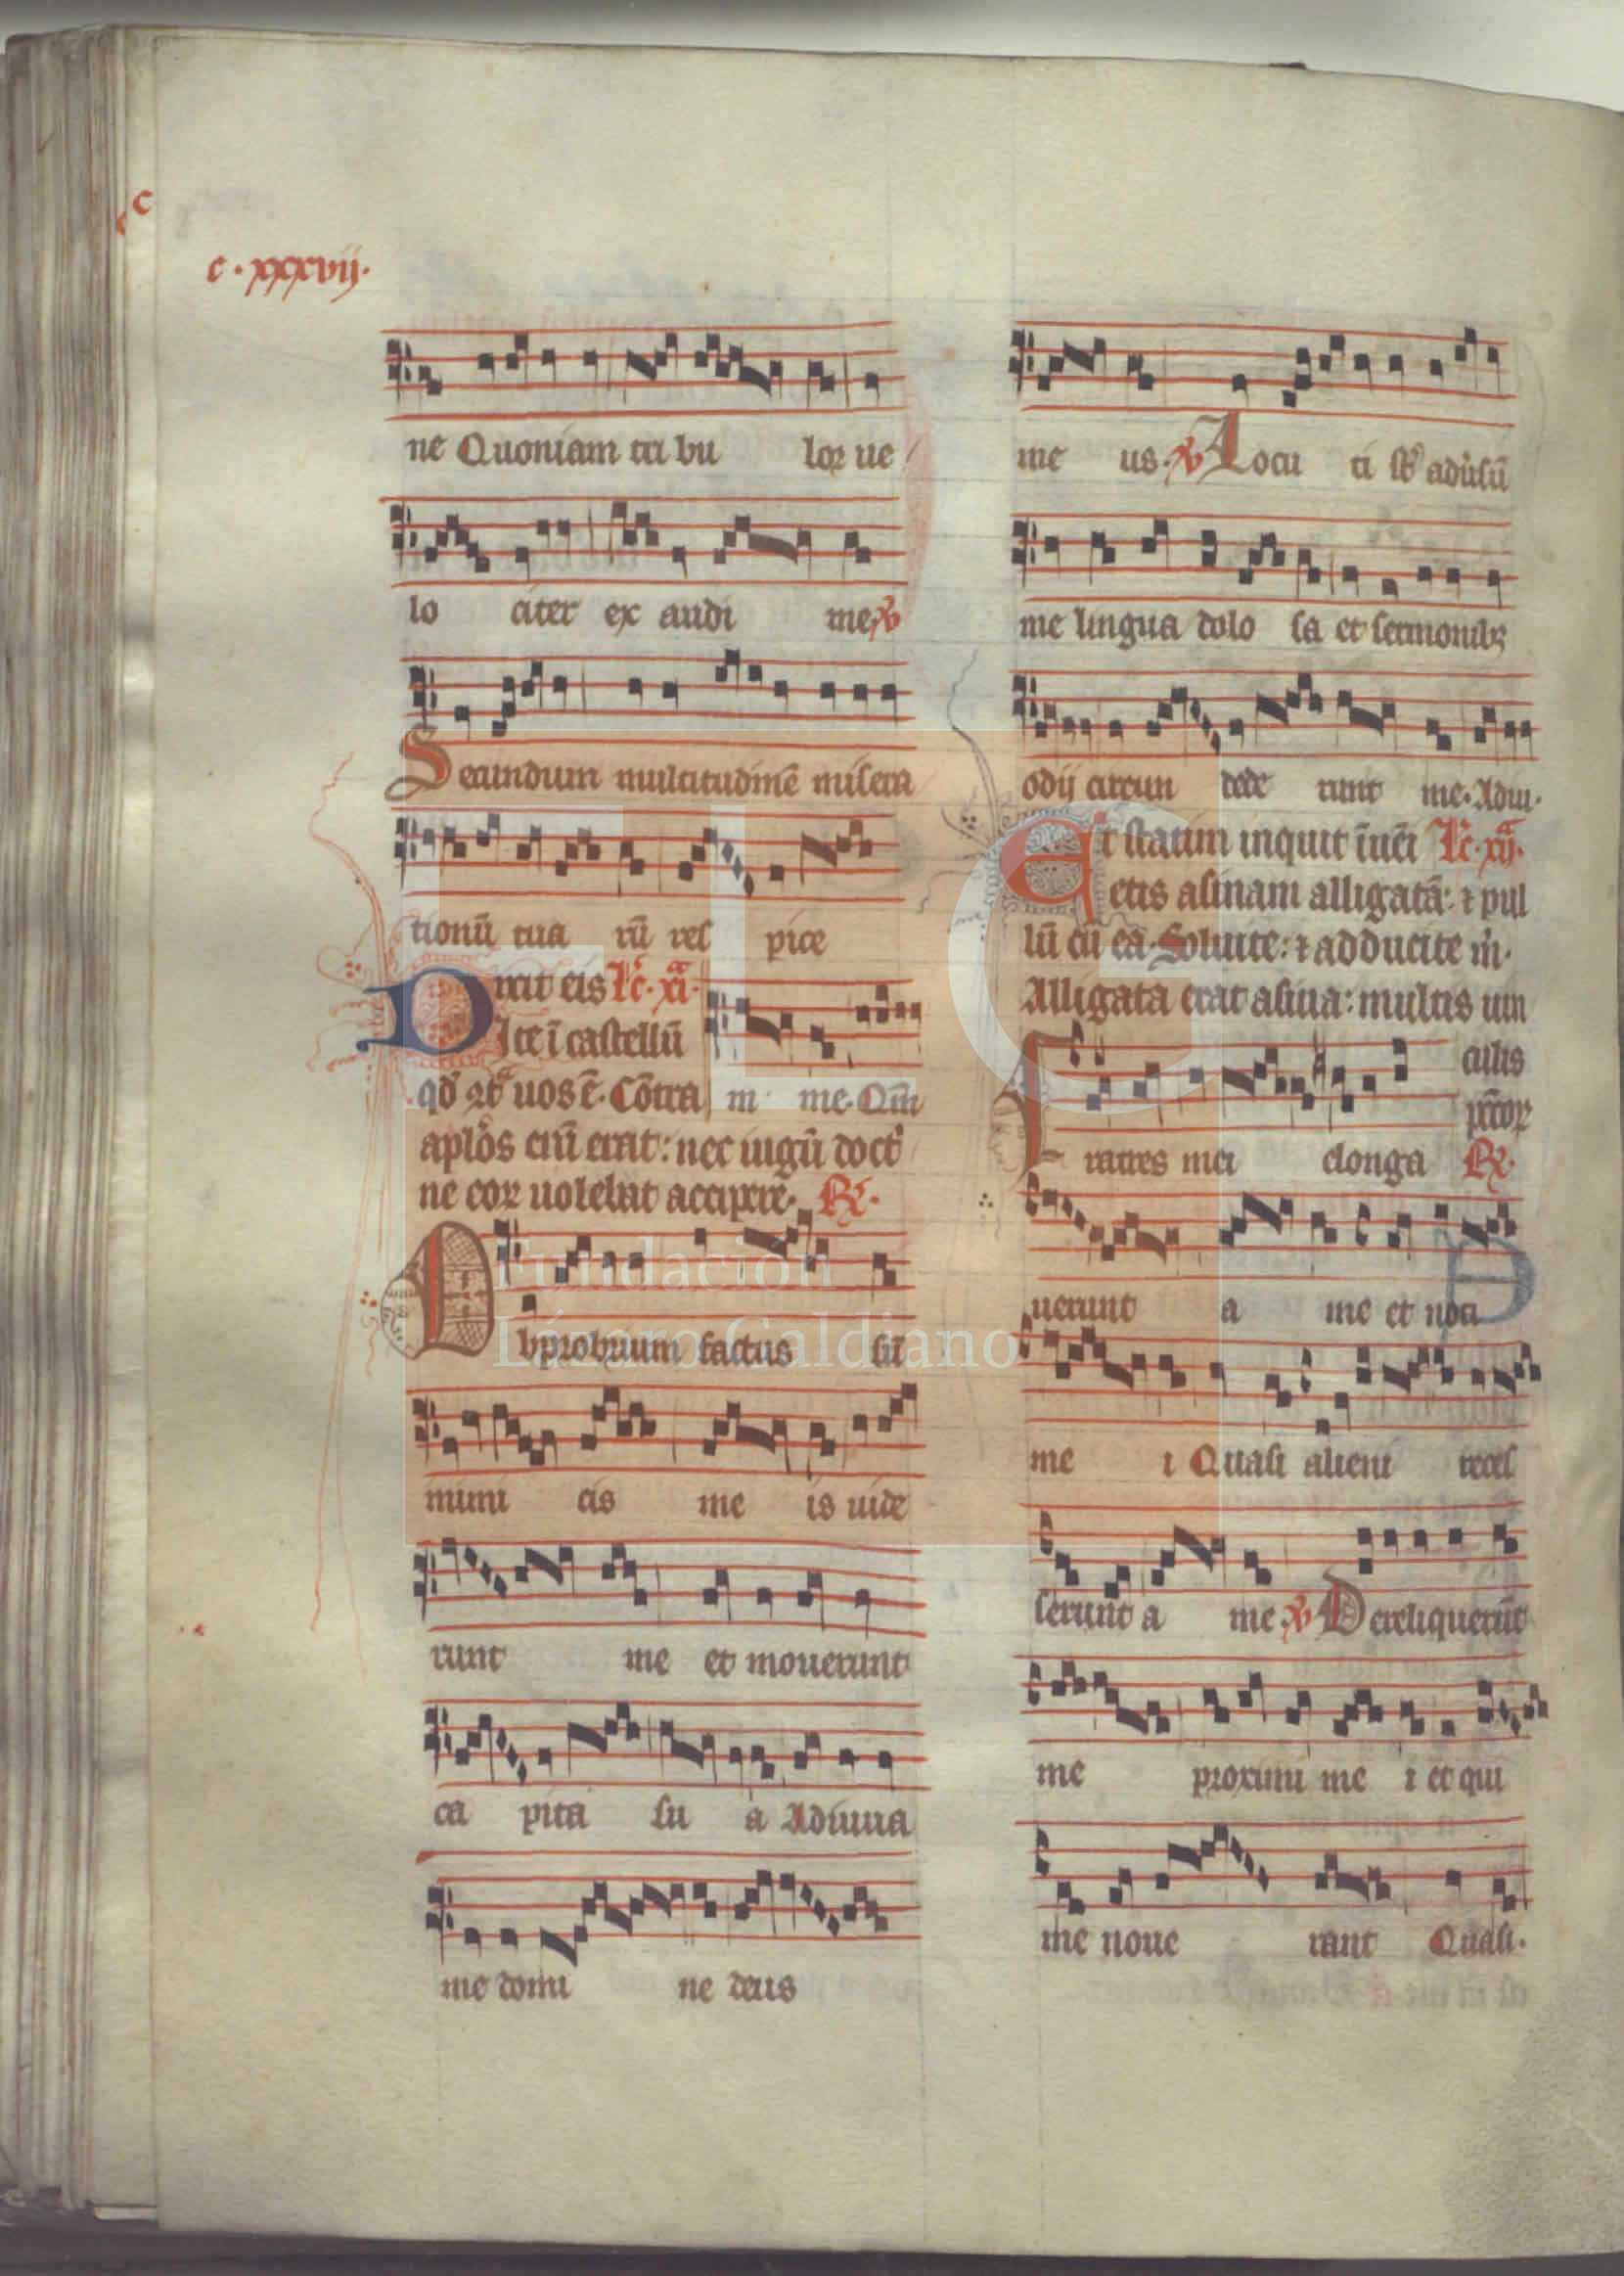 c
c · xxxvij ·
ne Quoniam tri bu lor ue
lo citer ex audi me
Secundum multitudinē misera
tionū tua rū res pice
Dixit eis Lc̄. xi.
Ite ī castellū
qd̄ uos ē. Cōtra
m me. Qm̄
aplōs enī erat: nec iugū
ne eor uolebat accipere. R.
Obprobrium factus sū
nimi cis me is uide
runt me et mouerunt
ca pita su a Adiuua
me domi ne deus
me us. V Locu ti st̄ adūsū
me lingua dolo sa et sermonibꝫ
odij circun dede runt me. Adiu.
Et statim inquit īuēi Lc̄. xij.
etis asinam alligatā: ⁊ pul
lū cū ea. Soluite: ⁊ adducite m̄.
Alligata erat asina: multis uin
culis
pc̄cor
Fratres mei elonga R.
uerunt a me et noti
me i Quasi alieni reces
serunt a me V Dereliquerūt
me proximi me i et qui
me noue rant Quasi.
Fundación
Lázaro Galdiano
FLG